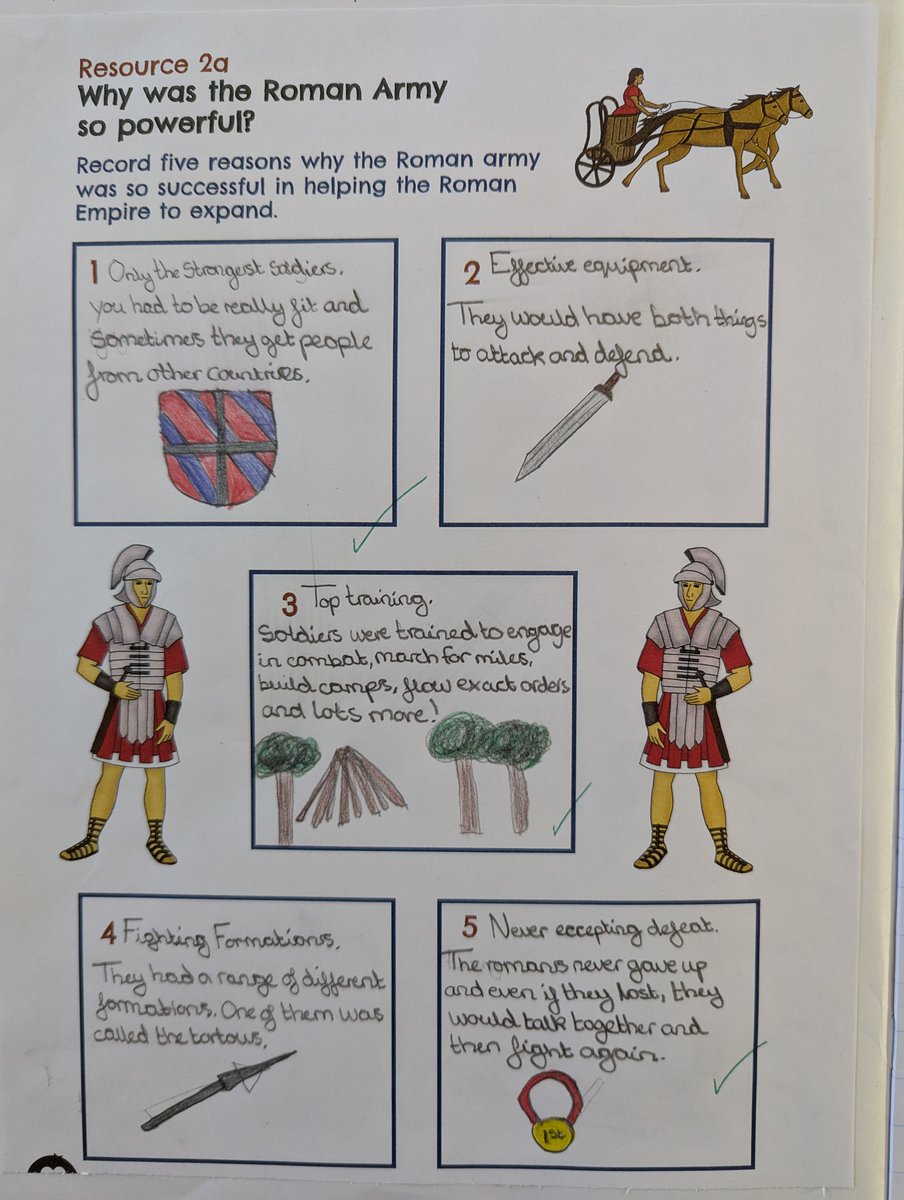 Resource 2a
Why was the Roman Army
so powerful?
Record five reasons why the Roman army
was so successful in helping the Roman
Empire to expand.
1 Only the Strongest Soldiers.
you had to be really fit and
Sometimes they get people
from other countries.
2 Effective equipment.
They would have both things
to attack and defend.
3 Top training.
Soldiers were trained to engage
in combat, march for miles,
build camps, flow exact orders
and lots more!
4 Fighting Formations.
They had a range of different
formations. One of them was
called the tortous.
5 Never eccepting defeat.
The romans never gave up
and even if they lost, they
would talk together and
then fight again.
1st